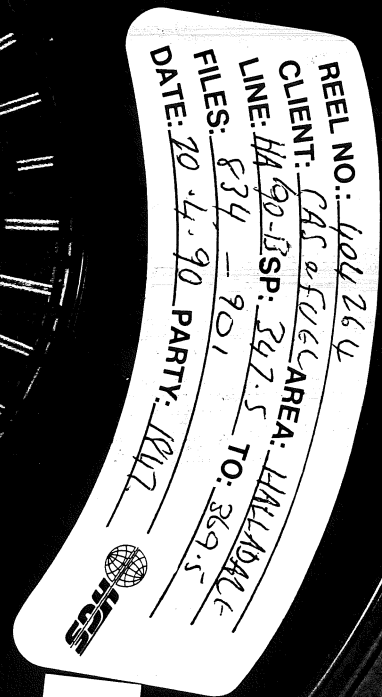 REEL NO.: 404264
CLIENT: GAS & FUEL AREA: HALLADALE
LINE: HA 90-B SP: 347.5 TO: 369.5
FILES: 834 - 901
DATE: 20.4.90 PARTY: 1847
HGS